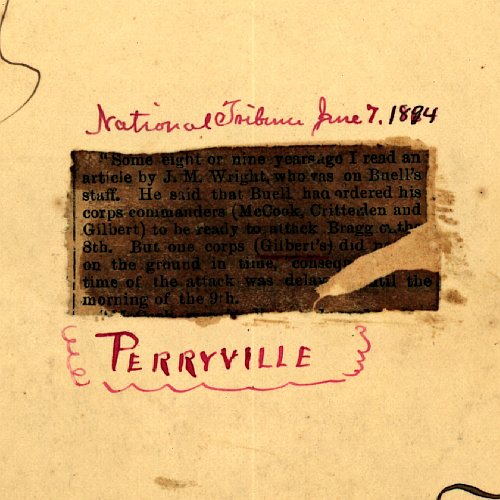 National Tribune June 7, 1884
"Some eight or nine years ago I read an
article by J. M. Wright, who was on Buell's
staff. He said that Buell had ordered his
corps commanders (McCook, Crittenden and
Gilbert) to be ready to attack Bragg on the
8th. But one corps (Gilbert's) did
on the ground in time,
time of the attack was until the
morning of the 9th.
PERRYVILLE